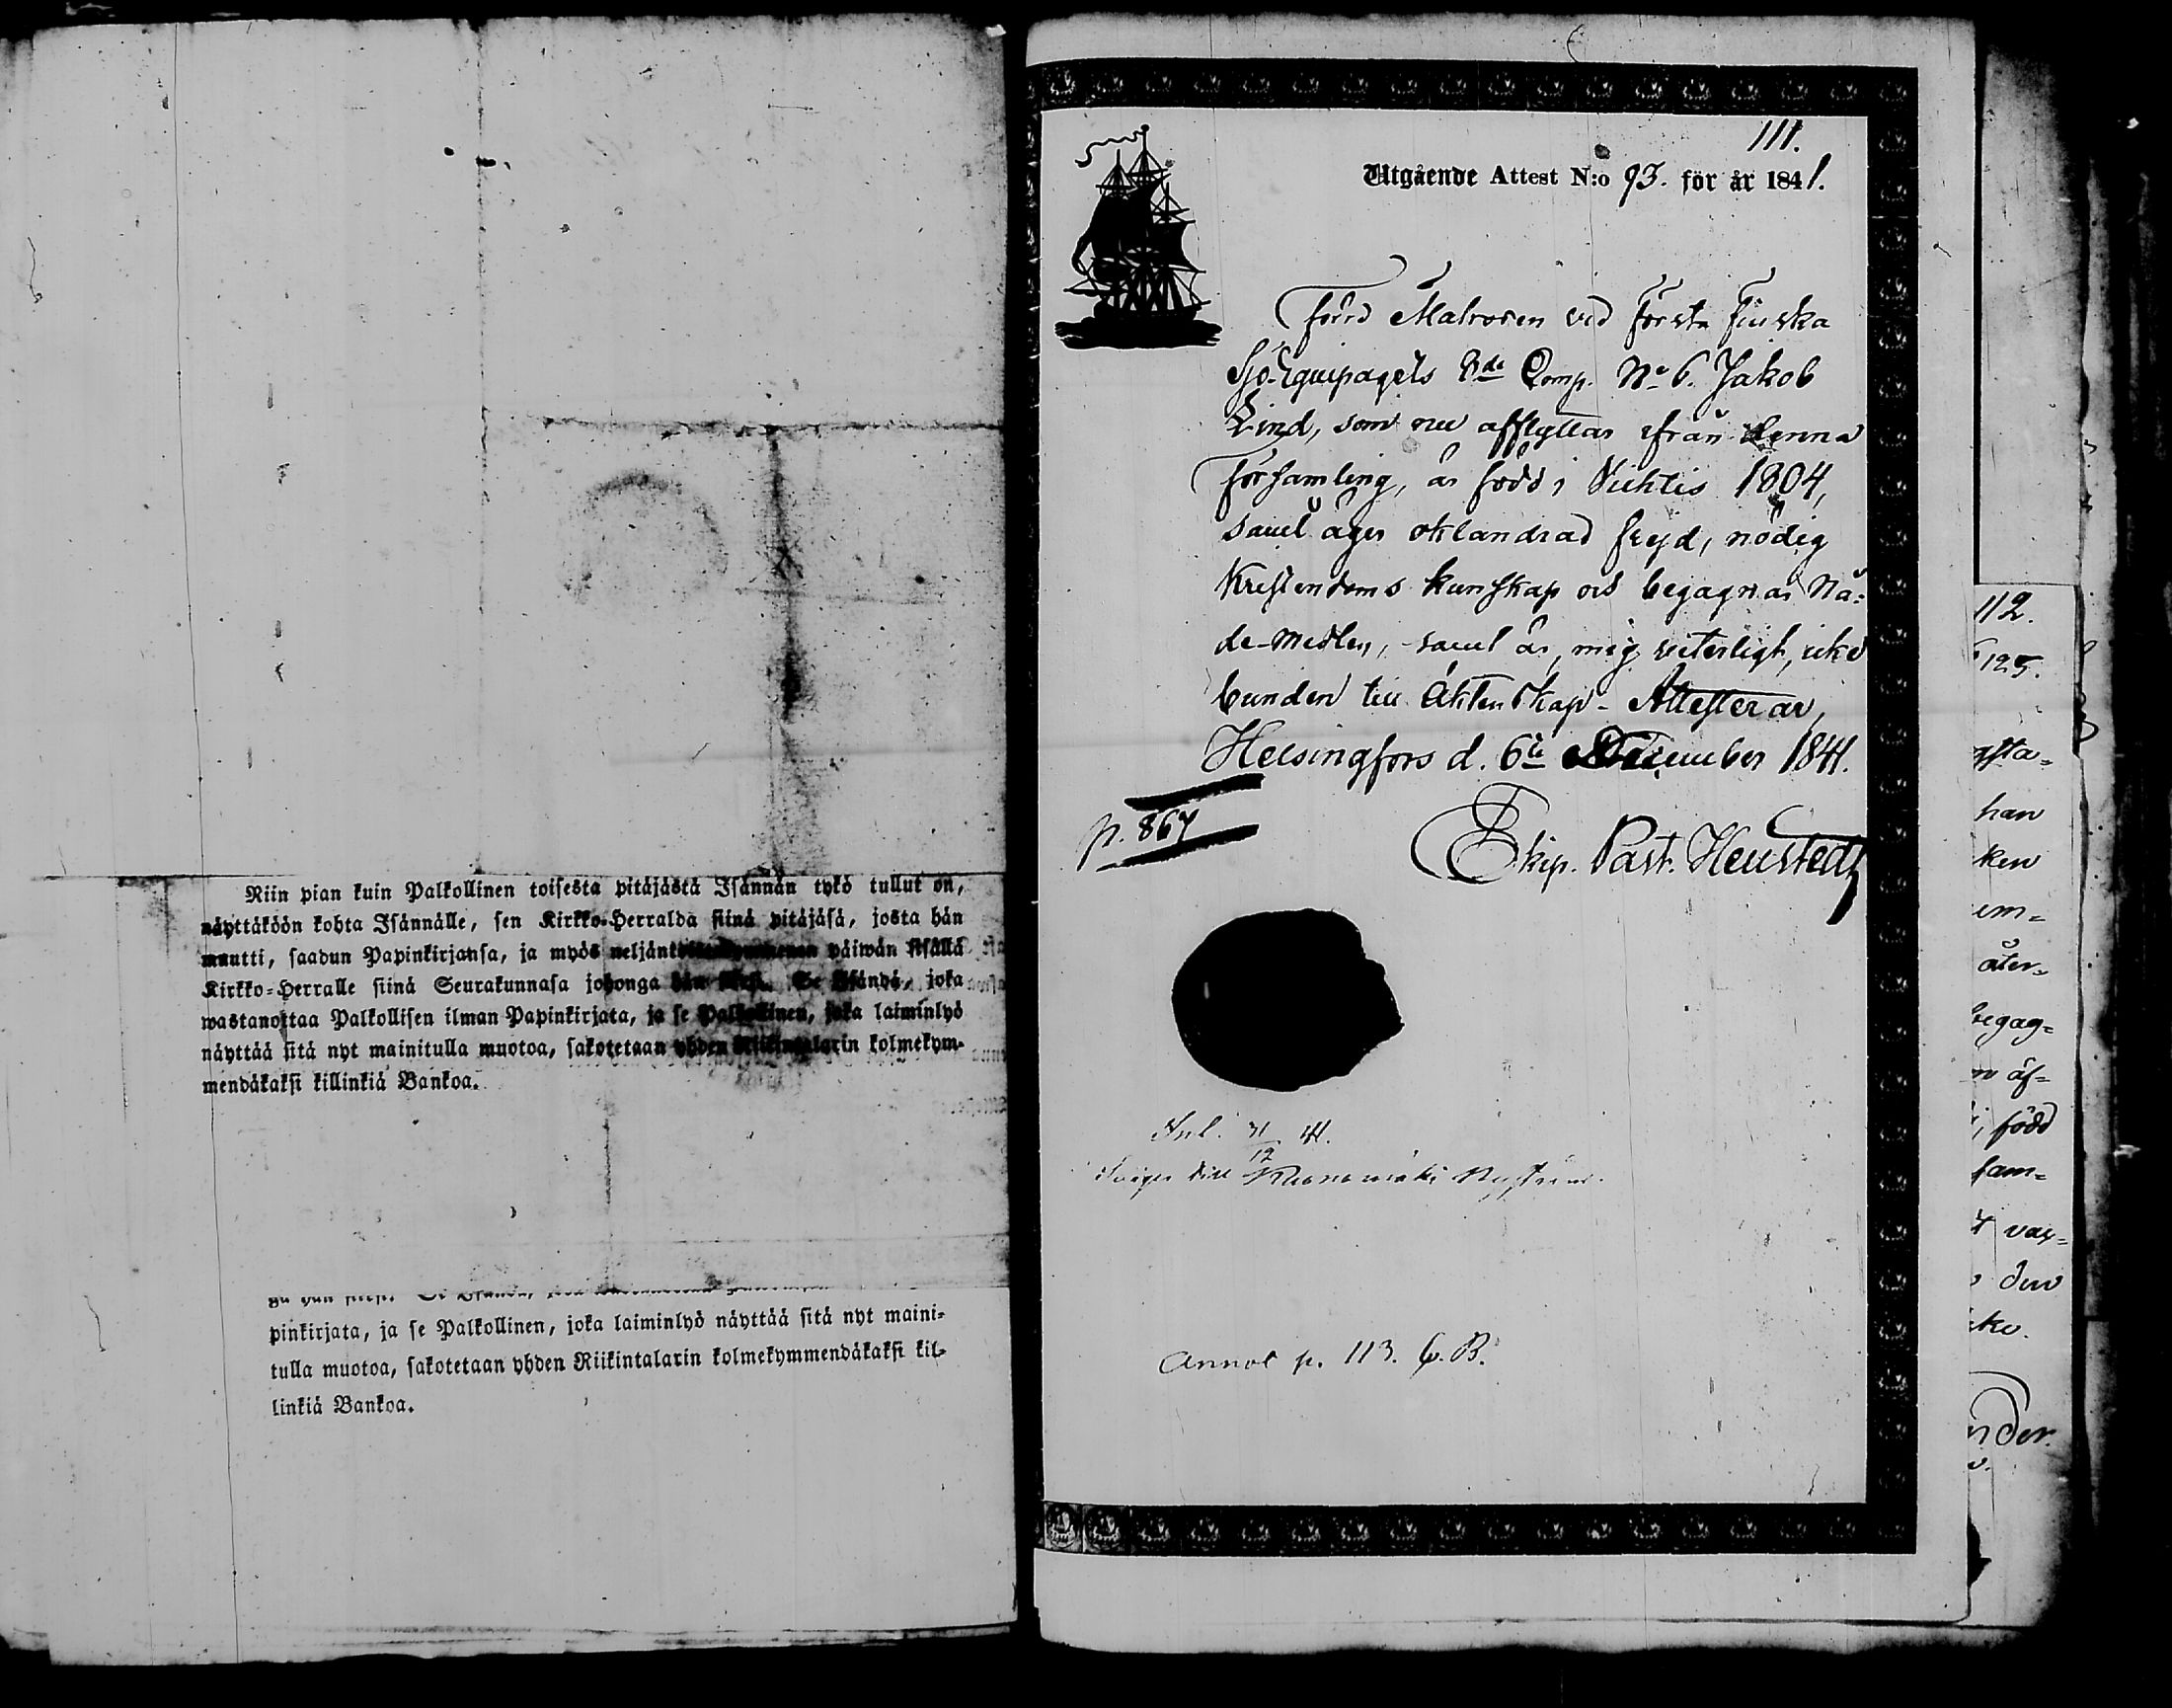 Niin pian kuin Palkollinen toisesta pitäjästä Isännän tykö tullut on,
näyttäköön kohta Isännälle, sen Kirkko-Herralda siinä pitäjäsä, josta hän
muutti, saadun Papinkirjansa, ja myös päiwän sisällä
Kirkko-Herralle siinä Seurakunnasa johonga hän Se Isändä, joka
wastanottaa Palkollisen ilman Papinkirjata, ja se Palkollinen, joka laiminlyö
näyttää sitä nyt mainitulla muotoa, sakotetaan yhden Riikintalarin kolmekym-
mendäkaksi killinkiä Bankoa.
pinkirjata, ja se Palkollinen, joka laiminlyö näyttää sitä nyt maini-
tulla muotoa, sakotetaan yhden Riikintalarin kolmekymmendäkaksi kil-
linkiä Bankoa.
111.
Utgående Attest N:o 93. för år 1841.
Förra Matrosen vid första finska
Sjö-Equipagets 3de Comp. No 6. Jakob
Lind, som nu afflyttar ifrån denna
församling, är född i Vichtis 1804,
samt äger oklandrad frejd, nödig
Kristendoms kunskap och begagnar Nå-
de-medlen, samt är, mig veterligt, icke
bunden till Äktenskap - Attesterar,
Helsingfors d. 6te December 1841.
p. 867
Skip. Past.
Inl. 31/12 41.
till
Annot p. 113. C. B.
112.
125.
han
ken
em-
åter-
begag-
född
fam-
den